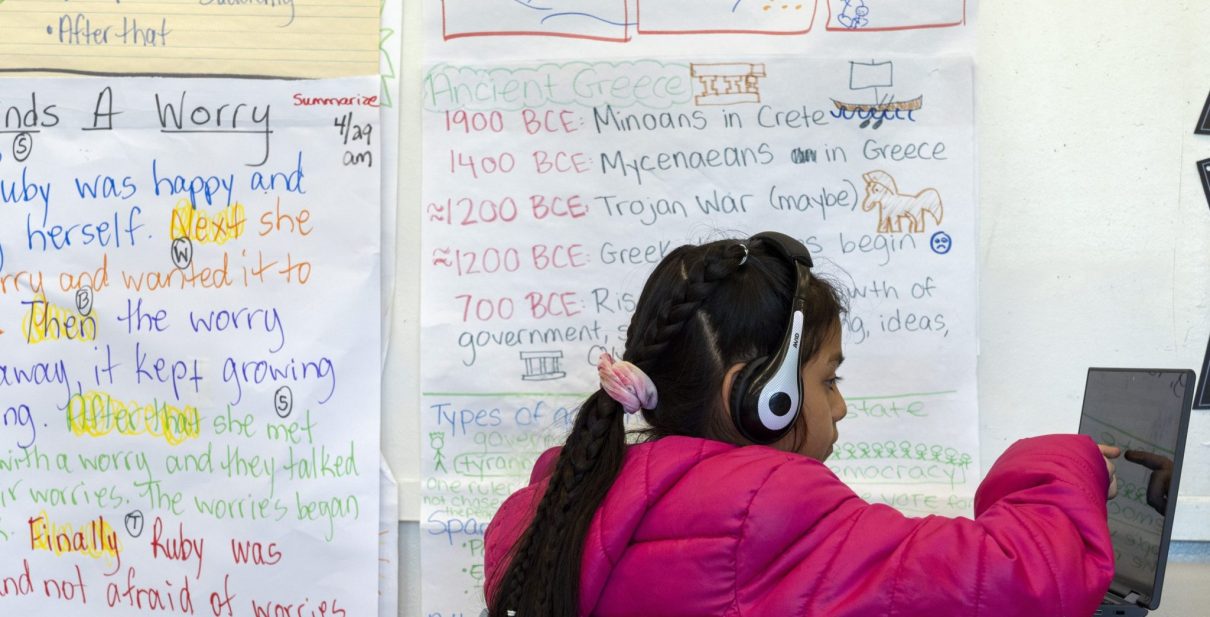 After that
nds A Worry
Summarize
4/29
am
S
uby was happy and
herself. Next she
W
rry and wanted it to
B
Then the worry
away, it kept growing
S
ng. After that she met
with a worry and they talked
ir worries. The worries began
T
Finally Ruby was
nd not afraid of worries
Ancient Greece
1900 BCE: Minoans in Crete
1400 BCE: Mycenaeans in Greece
≈1200 BCE: Trojan War (maybe)
≈1200 BCE: Greek s begin
700 BCE: Ris wth of
government, s ng, ideas,
Types of state
govern
tyrann emocracy
one ruler VOTE for
not chose
Spar